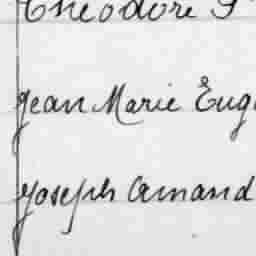 Theodore
Jean Marie Eug
Joseph Amand